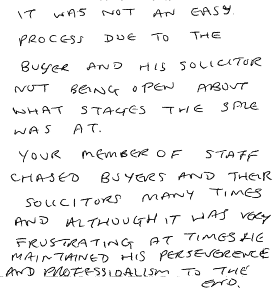 IT WAS NOT AN EASY
PROCESS DUE TO THE
BUYER AND HIS SOLICITOR
NOT BEING OPEN ABOUT
WHAT STAGES THE SALE
WAS AT.
YOUR MEMBER OF STAFF
CHASED BUYERS AND THEIR
SOLICITORS MANY TIMES
AND ALTHOUGH IT WAS VERY
FRUSTRATING AT TIMES HE
MAINTAINED HIS PERSEVERENCE
AND PROFESSIOALISM TO THE
END.